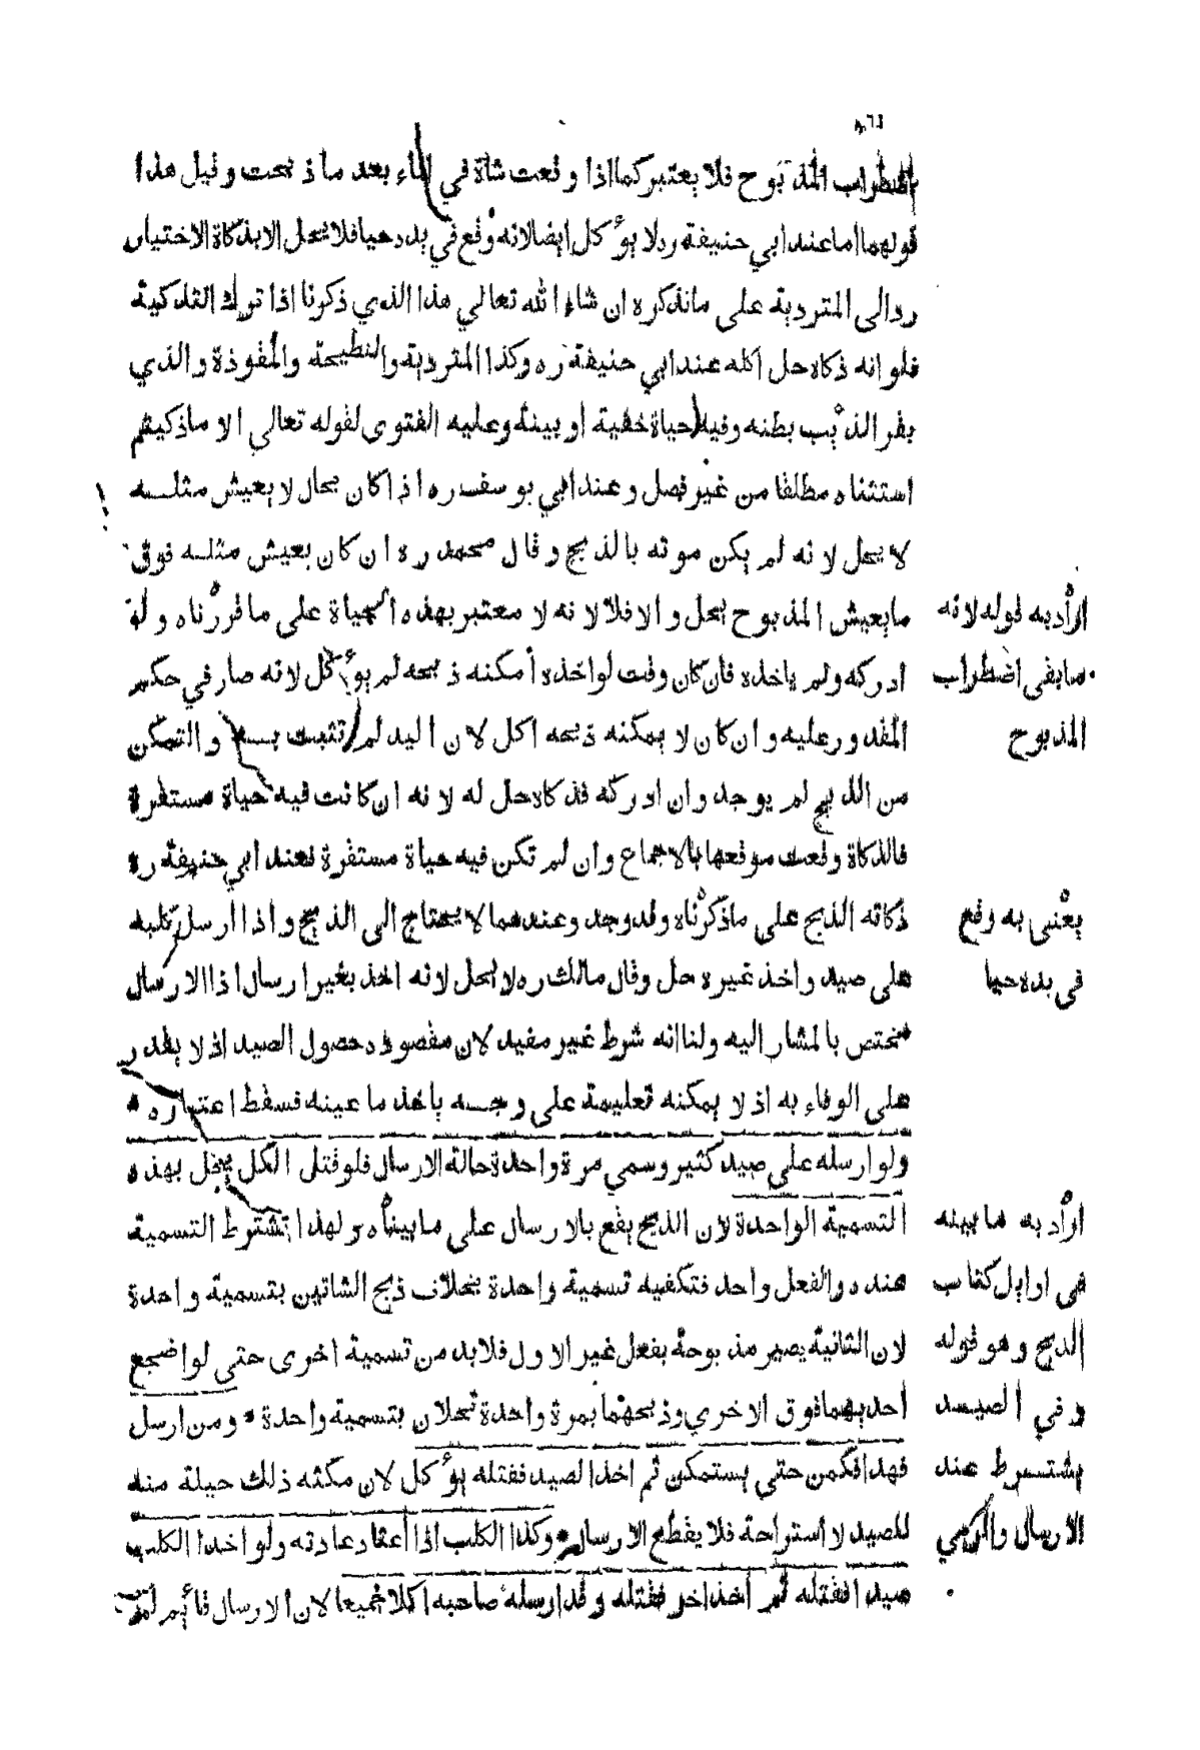 اضطراب المذبوح فلا يعتبر كما اذا وقعت شاة في الماء بعد ما ذبحت وقيل هذا
قولهما اما عند ابي حنيفة ره لا يؤكل ايضا لانه وقع في يده حيا فلا يحل الا بذكاة الاختيار
ردا الى المتردية على ما نذكره ان شاء الله تعالي هذا الذي ذكرنا اذا ترك التذكية
فلو انه ذكاه حل اكله عند ابي حنيفة ره وكذا المتردية والنطيحة والموقوذة والذي
بقر الذئب بطنه وفيه حياة خفية او بينة وعليه الفتوى لقوله تعالي الا ما ذكيتم
استثناه مطلقا من غير فصل وعند ابي يوسف ره اذا كان بحال لا يعيش مثله
لا يحل لانه لم يكن موته بالذبح وقال محمد ره ان كان يعيش مثله فوق
ما يعيش المذبوح يحل والا فلا لانه لا معتبر بهذه الحياة على ما قررناه ولو
ادركه ولم ياخذه فان كان وقت لو اخذه أمكنه ذبحه لم يؤكل لانه صار في حكم
المقدور عليه وان كان لا يمكنه ذبحه اكل لان اليد لم تثبت به والتمكن
من الذبح لم يوجد وان ادركه فذكاه حل له لانه ان كانت فيه حياة مستقرة
فالذكاة وقعت موقعها بالاجماع وان لم تكن فيه حياة مستقرة فعند ابي حنيفة ره
ذكاته الذبح على ما ذكرناه وقد وجد وعندهما لا يحتاج الى الذبح واذا أرسل كلبه
على صيد واخذ غيره حل وقال مالك ره لا يحل لانه اخذ بغير ارسال اذ الارسال
مختص بالمشار اليه ولنا انه شرط غير مفيد لان مقصوده حصول الصيد اذ لا يقدر
على الوفاء به اذ لا يمكنه تعليمه على وجه ياخذ ما عينه فسقط اعتباره *
ولو ارسله على صيد كثير وسمي مرة واحدة حالة الارسال فلو قتل الكل يحل بهذه
التسمية الواحدة لان الذبح يقع بالارسال على ما بيناه ولهذا تشترط التسمية
عنده والفعل واحد فتكفيه تسمية واحدة بخلاف ذبح الشاتين بتسمية واحدة
لان الثانية يصير مذبوحة بفعل غير الاول فلابد من تسمية اخرى حتى لو اضجع
أحديهما فوق الاخري وذبحهما بمرة واحدة تحلان بتسمية واحدة * ومن ارسل
فهدا فكمن حتى يستمكن ثم اخذ الصيد فقتله يؤكل لان مكثه ذلك حيلة منه
للصيد لا استراحة فلا يقطع الارسال * وكذا الكلب اذا أعتاد عادته ولو اخذ الكلب
صيدا فقتله ثم أخذ اخر فقتله وقد ارسله صاحبه اكلا جميعا لان الارسال قائم لم
اراد به قوله لانه
ما بقى اضطراب
المذبوح
يعنى به وقع
فى يده حيا
اراد به ما بينه
فى اوايل كتاب
الذبح وهو قوله
وفي الصيد
يشترط عند
الارسال والرمي